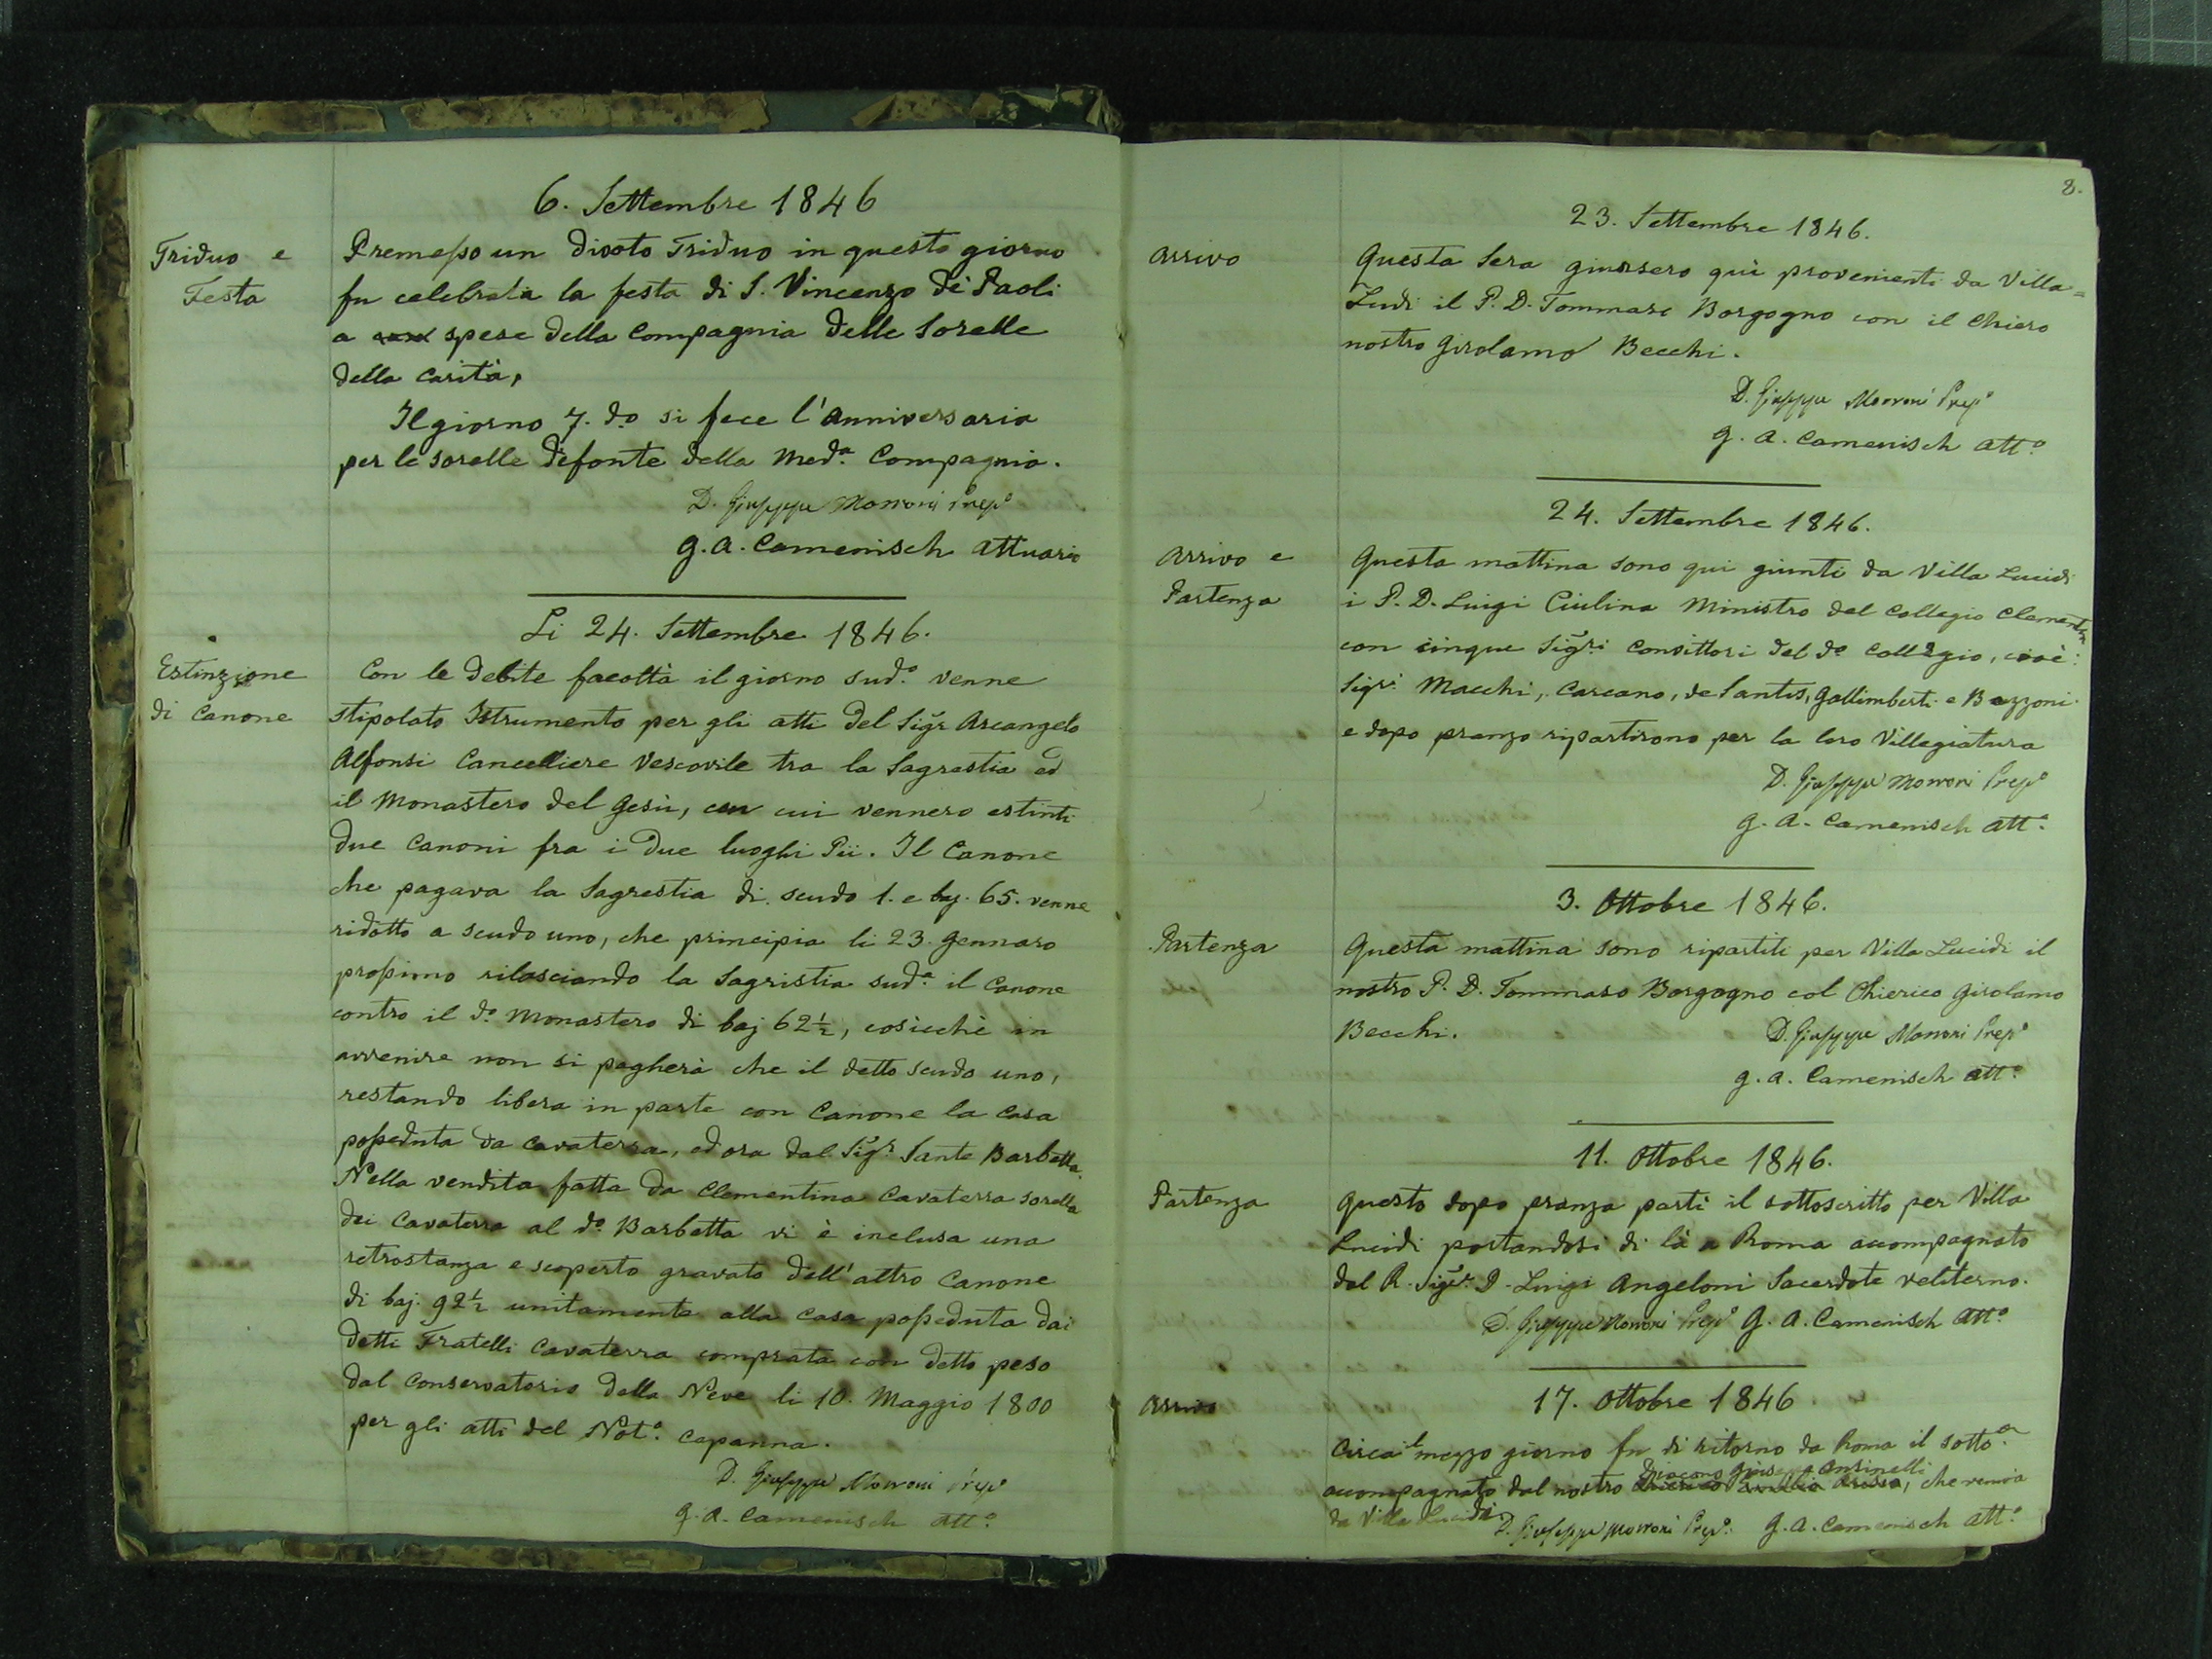 6. Settembre 1846
Triduo e
Festa
Premesso un divoto Triduo in questo giorno
fu celebrata la festa di S. Vincenzo de' Paoli
a spese della Compagnia delle Sorelle
della Carità,
Il giorno 7. do si fece l'Anniversario
per le sorelle defonte della Meda. Compagnia.
D. Giuseppe Morroni Prepo
G. A. Camenisch Attuario
Li 24. Settembre 1846.
Estinzione
di Canone
Con le debite facoltà il giorno sudo. venne
stipolato Istrumento per gli atti del Sigr Arcangelo
Alfonsi Cancelliere Vescovile tra la Sagrestia ed
il Monastero del Gesù, con cui vennero estinti
due Canoni fra i due luoghi Pii. Il Canone
che pagava la Sagrestia di scudo 1. e baj. 65. venne
ridotto a scudo uno, che principia li 23. Gennaro
prossimo rilasciando la Sagristia suda. il Canone
contro il do. Monastero di baj 62½, cosicchè in
avvenire non si pagherà che il detto scudo uno,
restando libera in parte con Canone la Casa
posseduta da Cavaterra, ed ora dal Sigr Sante Barbetta.
Nella vendita fatta da Clementina Cavaterra sorella
dei Cavaterra al do. Barbetta vi è inclusa una
retrostanza e scoperto gravato dell'altro Canone
di baj. 92½ unitamente alla casa posseduta dai
detti Fratelli Cavaterra comprata con detto peso
dal Conservatorio della Neve li 10. Maggio 1800
per gli atti del Noto. Capanna.
D. Giuseppe Morroni Prepo
G. A. Camenisch Atto.
8.
23. Settembre 1846.
Arrivo
Questa sera giunsero quì provenienti da Villa=
Lucidi il P. D. Tommaso Borgogno con il Chierico
nostro Girolamo Becchi.
D. Giuseppe Morroni Prepo
G. A. Camenisch Atto.
24. Settembre 1846.
Arrivo e
Partenza
Questa mattina sono qui giunti da Villa Lucidi
i P. D. Luigi Ciulina Ministro del Collegio Clementin
con cinque Sigri Convittori del do Collegio, cioè:
Sigri. Macchi, Carcano, de Santis, Gallimberti e Bazzoni
e dopo pranzo ripartirono per la loro Villegiatura
D. Giuseppe Morroni Prepo
G. A. Camenisch Atto.
3. Ottobre 1846.
Partenza
Questa mattina sono ripartiti per Villa Lucidi il
nostro P. D. Tommaso Borgogno col Chierico Girolamo
Becchi.
D. Giuseppe Morroni Prepo
G. A. Camenisch Atto.
11. Ottobre 1846.
Partenza
Questo dopo pranzo partì il sottoscritto per Villa
Lucidi portandosi di là a Roma accompagnato
dal R. Sigr. D. Luigi Angeloni Sacerdote veliterno.
D. Giuseppe Morroni Prepo G. A. Camenisch Atto.
17. Ottobre 1846
Arrivo
Circa il mezzo giorno fu di ritorno da Roma il sotto
accompagnato dal nostro Diacono Ansinelli, che veniva
da Villa Lucidi
D. Giuseppe Morroni Prepo. G. A. Camenisch Atto.